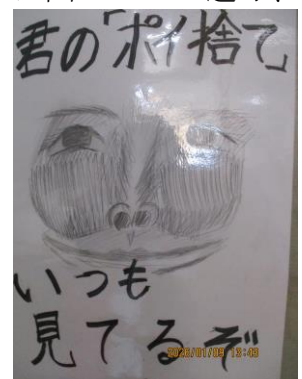 君の「ポイ捨て」
いつも
見てるぞ